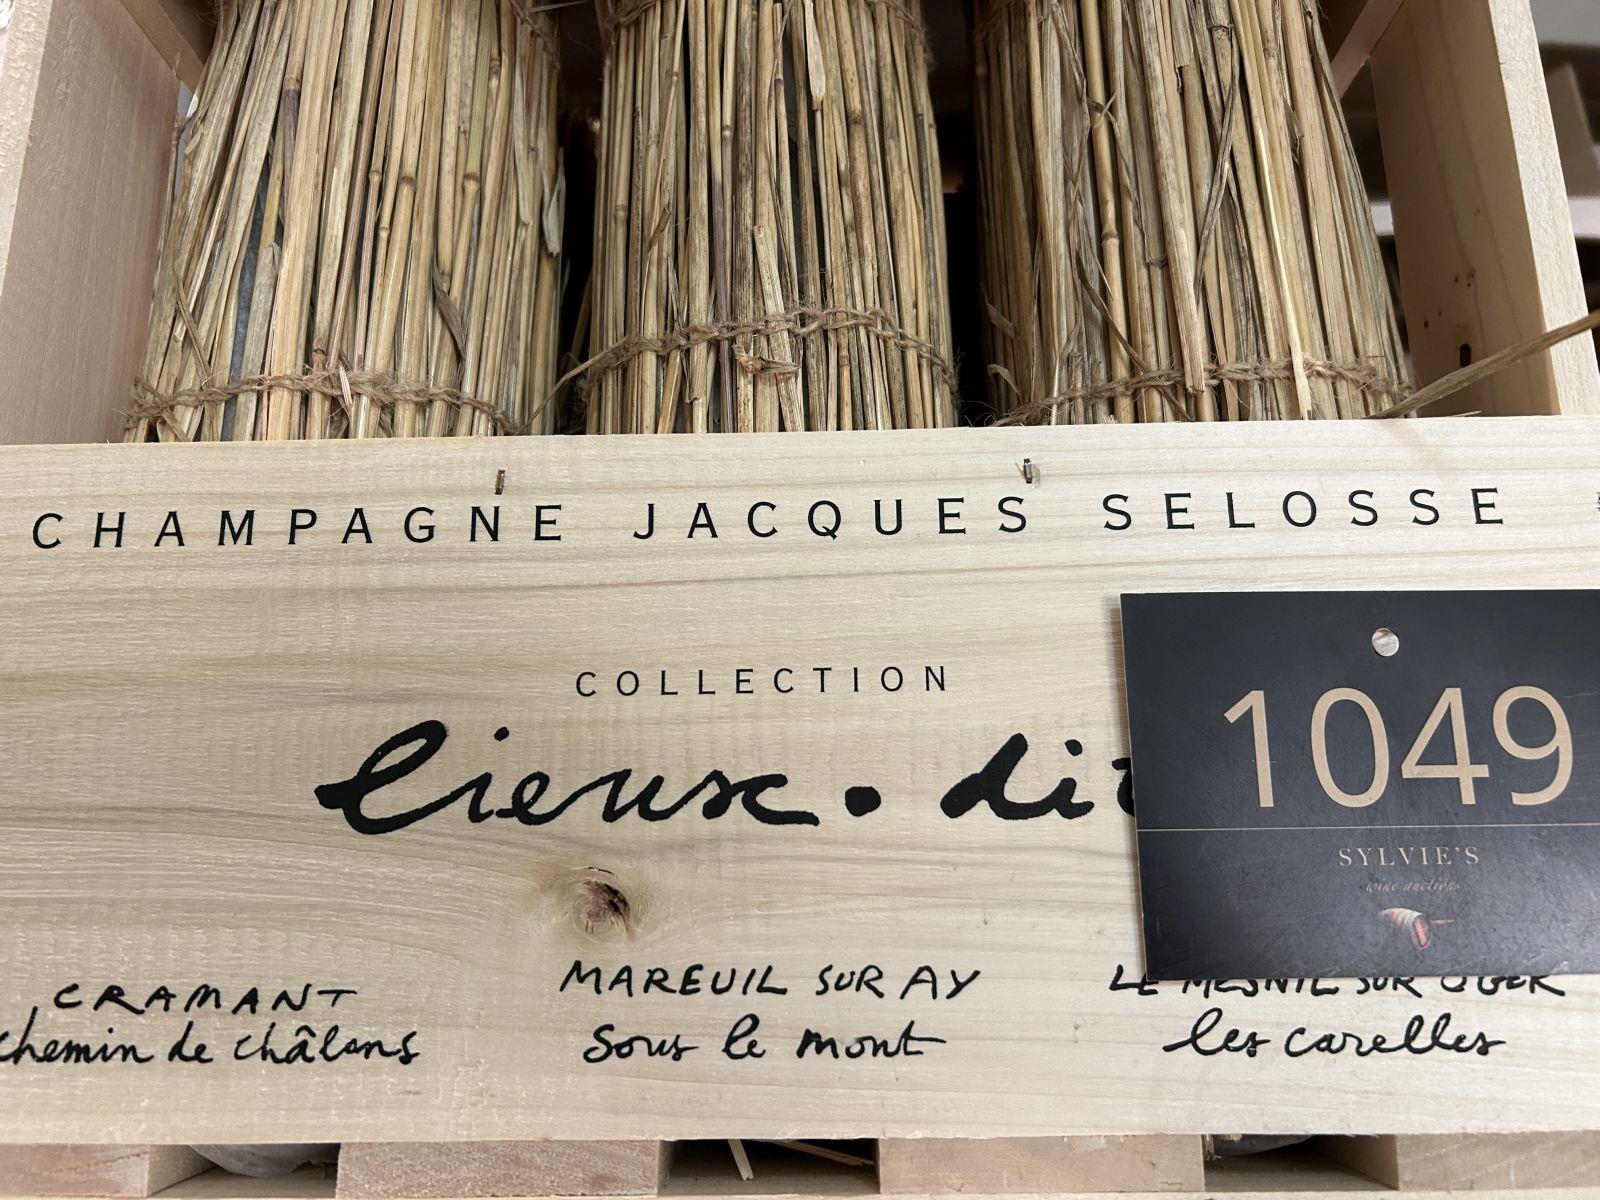 CHAMPAGNE JACQUES SELOSSE
COLLECTION
lieux.di
1049
SYLVIE'S
wine auctions
CRAMANT
chemin de châlons
MAREUIL SUR AY
sous le mont
LE MESNIL SUR OGER
les carelles